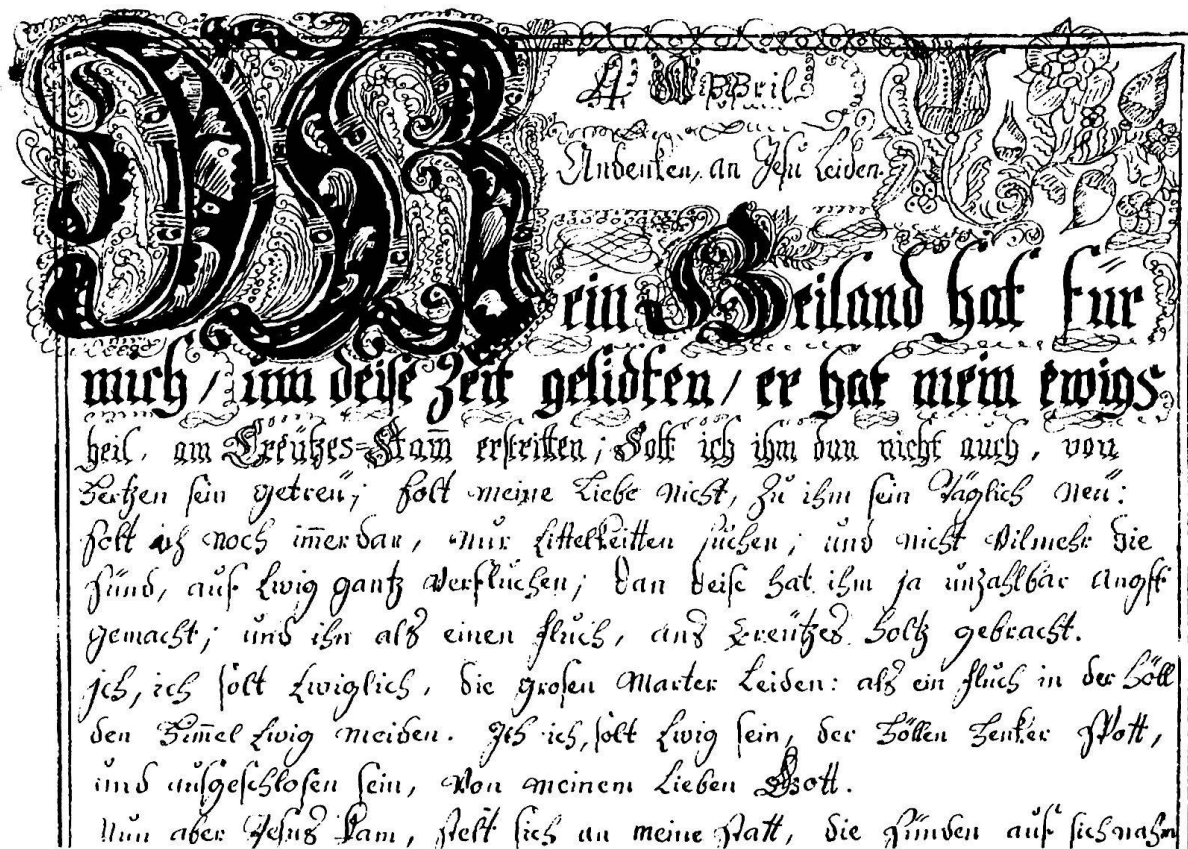 4 Appril
Andenken, an Jesu Leiden.
Mein Heiland hat für
mich / um deise Zeit gelidten / er hat mein ewigs
heil, am Creützes=Stam̄ erstritten; Solt ich ihm dan nicht auch, von
Hertzen sein getreü; solt meine Liebe nicht, zu ihm sein Täglich neü:
solt ich noch im̄erdar, nur Eittelkeitten suchen; und nicht vilmehr die
sünd, auf Ewig gantz verfluchen; dan deise hat ihm ja unzahlbar angst
gemacht; und ihn als einen fluch, ans Creützes Holtz gebracht.
Ich, ich solt Ewiglich, die grosen Marter Leiden: als ein fluch in der Höll
den Him̄el Ewig meiden. Ich ich, solt Ewig sein, der Höllen Henker Spott,
und ausgeschlosen sein, von meinem Lieben Gott.
Nun aber Jesus kam, stelt sich an meine statt, die sünden auf sich nahm